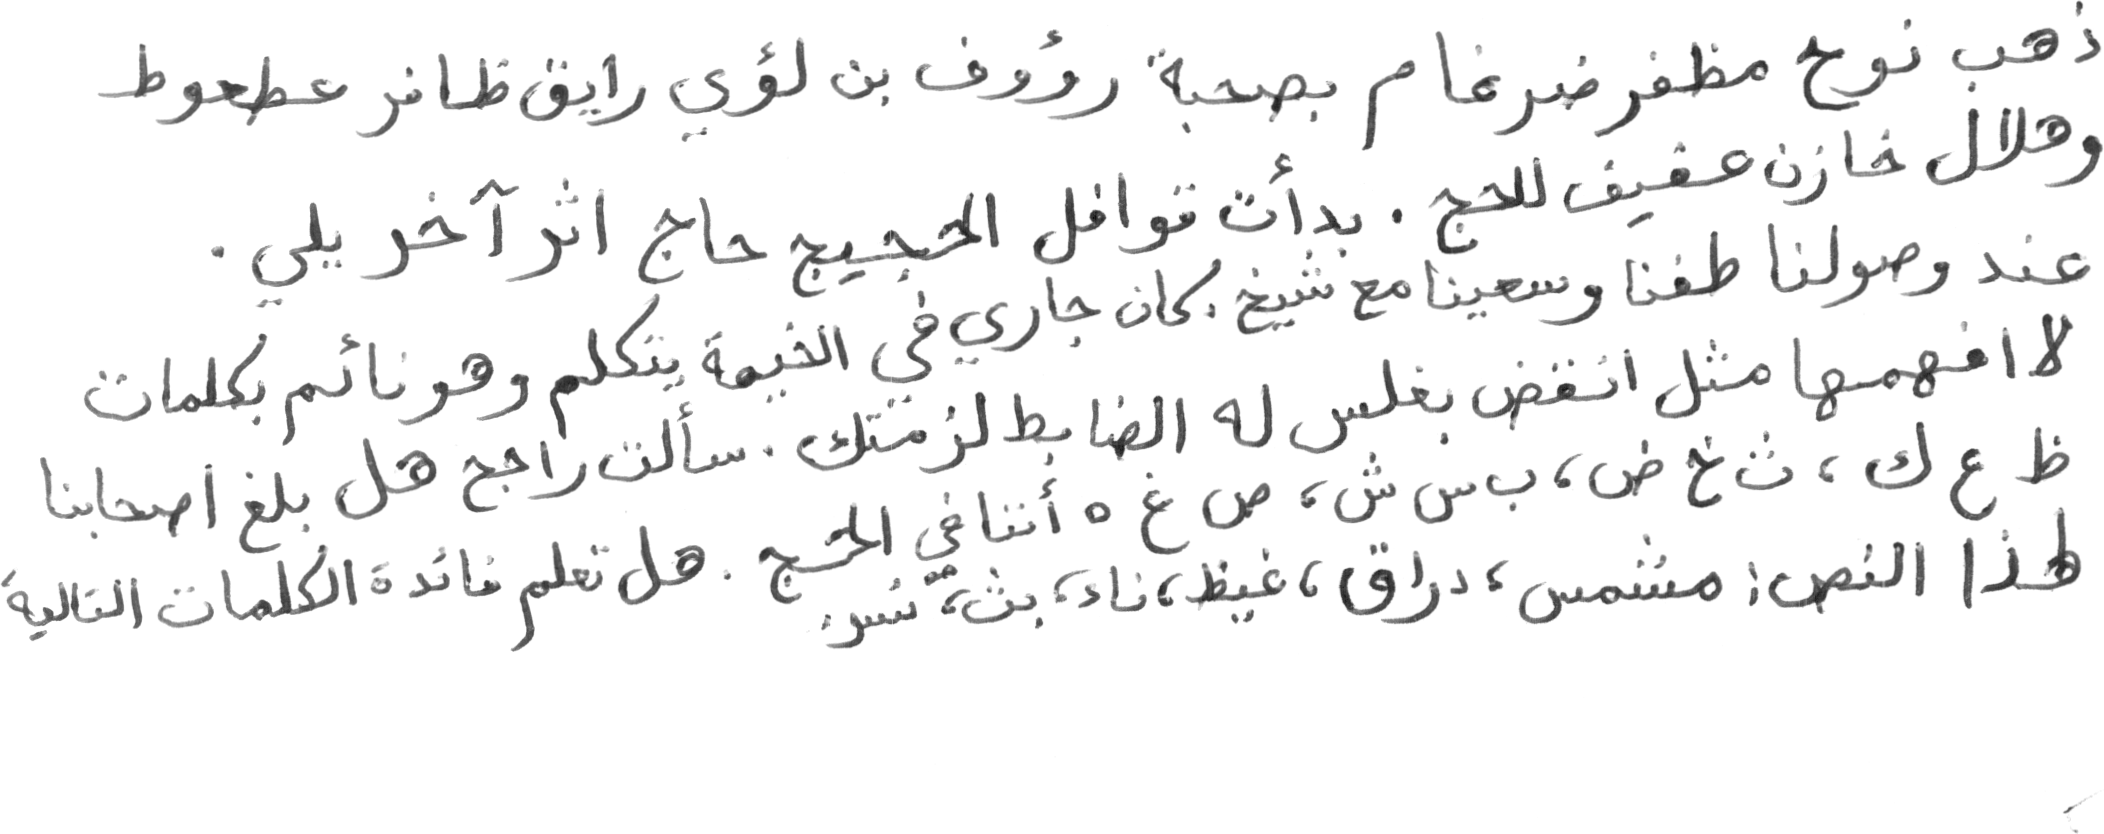 ذهب نوح مظفر ضرغام بصحبة رؤوف بن لؤي رايق ظافر عطعوط
وهلال خازن عفيف للحج . بدأت قوافل الحجيج حاج اثر آخر يلي .
عند وصولنا طفنا وسعينا مع شيخ . كان جاري في الخيمة يتكلم وهو نائم بكلمات
لا افهمها مثل انقض بغلس له الضابط لزمتك . سألت راجح هل بلغ اصحابنا
ظ ع ك ، ث خ ض ، ب س ش ، ص غ ه أننا في الحج . هل تعلم فائدة الكلمات التالية
لهذا النص : مشمس ، دراق ، غيظ ، ناء ، بث ،